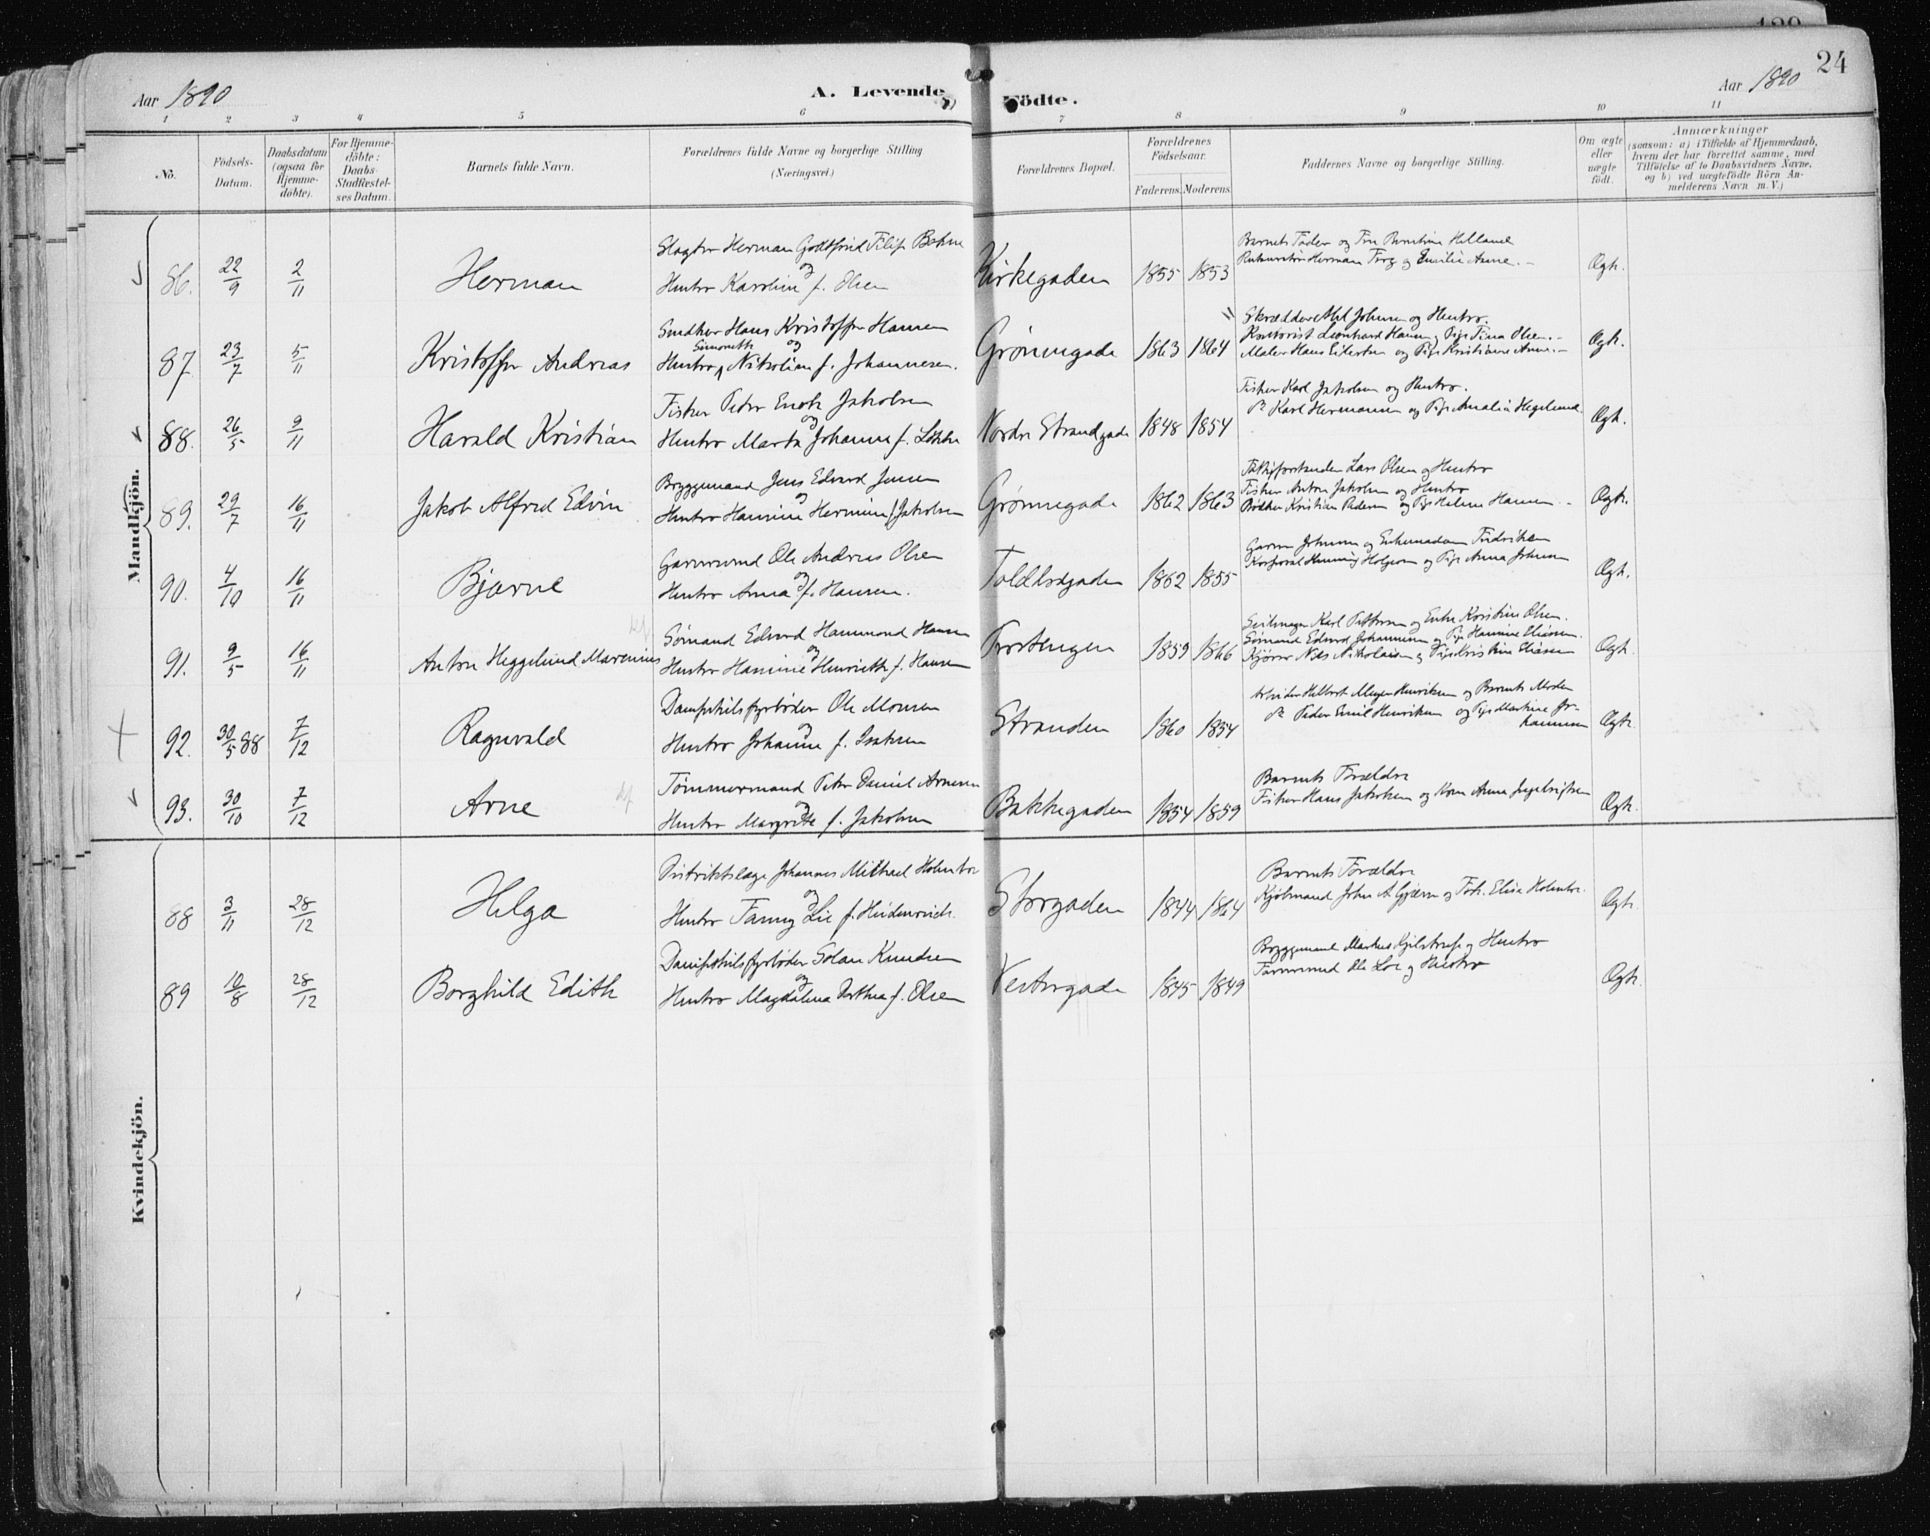 24
Aar 1890
A. Levende Födte.
Aar 1890
1 2 3 4 5 6 7 8 9 10 11
No.
Födsels-Datum.
Daabsdatum (ogsaa for Hjemme-döbte).
For Hjemme-döbte: Daabs-Stadfæstel-ses Datum.
Barnets fulde Navn.
Forældrenes fulde Navne og borgerlige Stilling (Næringsvei.)
Forældrenes Bopæl.
Forældrenes Födselsaar.
Faderens. Moderens.
Faddernes Navne og borgerlige Stilling.
Om ægte eller uægte födt.
Anmærkninger
(saasom: a) i Tilfælde af Hjemmedaab,
hvem der har forrettet samme, med
Tilföielse af to Daabsvidners Navne,
og b) ved uægtefödte Börn An-
melderens Navn m. V.)
Mandkjön.
86. 22/9 2/11 Herman
Slagter Herman Godtfried Filip
og
Hustro Karoline f. Olsen
Kirkegaden 1855 1853
Barnets Fader og Fru
Herman og Emilie
Ægte.
87. 23/7 5/11 Kristoffer Andreas
Snedker Hans Kristoffer Hansen
og
Hustro Nikoline f. Johannesen.
Grønnegade 1863 1864
Skrædder Johnsen og Hustro.
Leonhard Hansen, Pige Tina Olsen.
Maler Hans Eilertsen og Pige Kristiane
Ægte.
88. 26/5 9/11 Harald Kristian
Fisker Peter Enok Jakobsen
og
Hustro Marta Johanna f.
Nordre Strandgade 1848 1854
Fisker Karl Jakobsen og Hustro.
Karl Hermansen og Pige Amalia Hegelund
Ægte.
89. 29/7 16/11 Jakob Alfred Edvin
Bryggemand Jens Edvard Jensen
og
Hustro Hansine Hermine f. Jakobsen
Grønnegade 1862 1863
Lars Olsen og Hustro
Fisker Anton Jakobsen og Hustro
Bødker Kristian Pedersen og Pige Hansen
Ægte.
90. 4/10 16/11 Bjarne
Garversvend Ole Andreas Olsen
og
Hustro Anna f. Hansen.
Toldbodgaden 1862 1855
Garver Johnsen og Enkemadam Fredriksen
Korporal Henning Holgersen og Pige Anna Johnsen
Ægte.
91. 9/5 16/11 Anton Heggelund Marenius
Sømand Edvard Hammond Hansen
og
Hustro Hansine Henriette f. Hansen
1859 1866
Seilmager Karl Pettersen og Enke Kristine Olsen.
Sømand Edvard Johannesen og Pige Hansine Eliasen.
Kjører Nils Nikolaisen og Pige Kristine Eliasen
Ægte.
92. 30/5 88 7/12 Ragnvald
Dampskibsfyrbøder Ole Monsen
og
Hustro Johanna f. Isaksen
Stranden 1860 1854
Arbeider Meyer Henriksen og Barnets Moder
Peder Emil Henriksen og Pige Martine Jo-
hannesen
Ægte.
93. 30/10 7/12 Arne
Tømmermand Peter Daniel Arnesen
og
Hustro Margrethe f. Jakobsen
Bakkegaden 1854 1859
Barnets Forældre
Fisker Hans Jakobsen og Kone Anna Ingebrigtsen
Ægte.
Kvindekjön.
88 3/11 28/12 Helga
Distriktslæge Johannes Mikael Holmboe
og
Hustro Fanny Lie f. Heidenreich.
Storgaden 1844 1864
Barnets Forældre
Kjøbmand John A Gjæver og Frk. Elise Holmboe.
Ægte.
89 10/8 28/12 Borghild Edith
Dampskibsfyrbøder Golan Knudsen
og
Hustro Magdalena Dorthea f. Olsen
Vestergade 1845 1849
Bryggemand Markus Kjilstrup og Hustro
Farversvend Ole Loe og Hustro
Ægte.